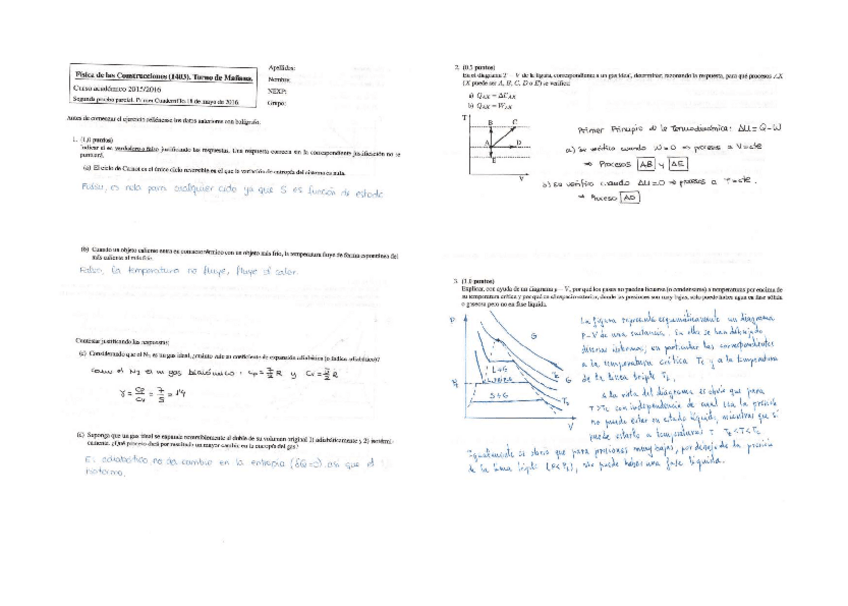 Física de las Construcciones (1403). Turno de Mañana.
Curso académico 2015/2016
Segunda prueba parcial. Primer Cuadernillo 18 de mayo de 2016
Apellidos:
Nombre:
NEXP:
Grupo:
Antes de comenzar el ejercicio rellénense los datos anteriores con bolígrafo.
1. (1,0 puntos)
Indicar si es verdadero o falso justificando las respuestas. Una respuesta correcta sin la correspondiente justificación no se
puntuará.
(a) El ciclo de Carnot es el único ciclo reversible en el que la variación de entropía del sistema es nula.
Falso, es nula para cualquier ciclo ya que S es función de estado
(b) Cuando un objeto caliente entra en contacto térmico con un objeto más frío, la temperatura fluye de forma espontánea del
más caliente al más frío.
Falso, la temperatura no fluye, fluye el calor.
Contestar justificando las respuestas:
(c) Considerando que el N₂ es un gas ideal, ¿cuánto vale su coeficiente de expansión adiabático (o índice adiabático)?
Como el N2 es un gas biatómico: Cp = 7/2 R y Cv = 5/2 R
γ = Cp/Cv = 7/5 = 1'4
Suponga que un gas ideal se expande reversiblemente al doble de su volumen original 1) adiabáticamente y 2) isotérmi-
camente. ¿Qué proceso dará por resultado un mayor cambio en la entropía del gas?
El adiabático no da cambio en la entropía (δQ=0), así que el
isotermo.
2. (0,5 puntos)
En el diagrama T - V de la figura, correspondiente a un gas ideal, determinar, razonando la respuesta, para qué procesos AX
(X puede ser A, B, C, D o E) se verifica:
a) Q_AX = ΔU_AX
b) Q_AX = W_AX
T
B
C
A
D
E
V
Primer Principio de la Termodinámica: ΔU = Q-W
a) Se verifica cuando W=0 ⇒ proceso a V=cte
⇒ Procesos AB y AE
b) Se verifica cuando ΔU=0 ⇒ proceso a T=cte.
⇒ Proceso AD
3. (1,0 puntos)
Explicar, con ayuda de un diagrama p - V, por qué los gases no pueden licuarse (o condensarse) a temperaturas por encima de
su temperatura crítica y por qué en el espacio exterior, donde las presiones son muy bajas, solo puede haber agua en fase sólida
o gaseosa pero no en fase líquida.
P
G
L+G
Tc
G
S+G
V
La figura representa esquemáticamente un diagrama
P-V de una sustancia. En ella se han dibujado
diversas isotermas, en particular las correspondientes
a la temperatura crítica Tc y a la temperatura
de la línea triple
A la vista del diagrama es obvio que para
T>Tc con independencia de cual sea la presión
no puede estar en estado líquido, mientras que sí
puede estarlo a temperaturas T
Igualmente se observa que para presiones muy bajas, por debajo de la presión
de la línea triple, no puede haber una fase líquida.